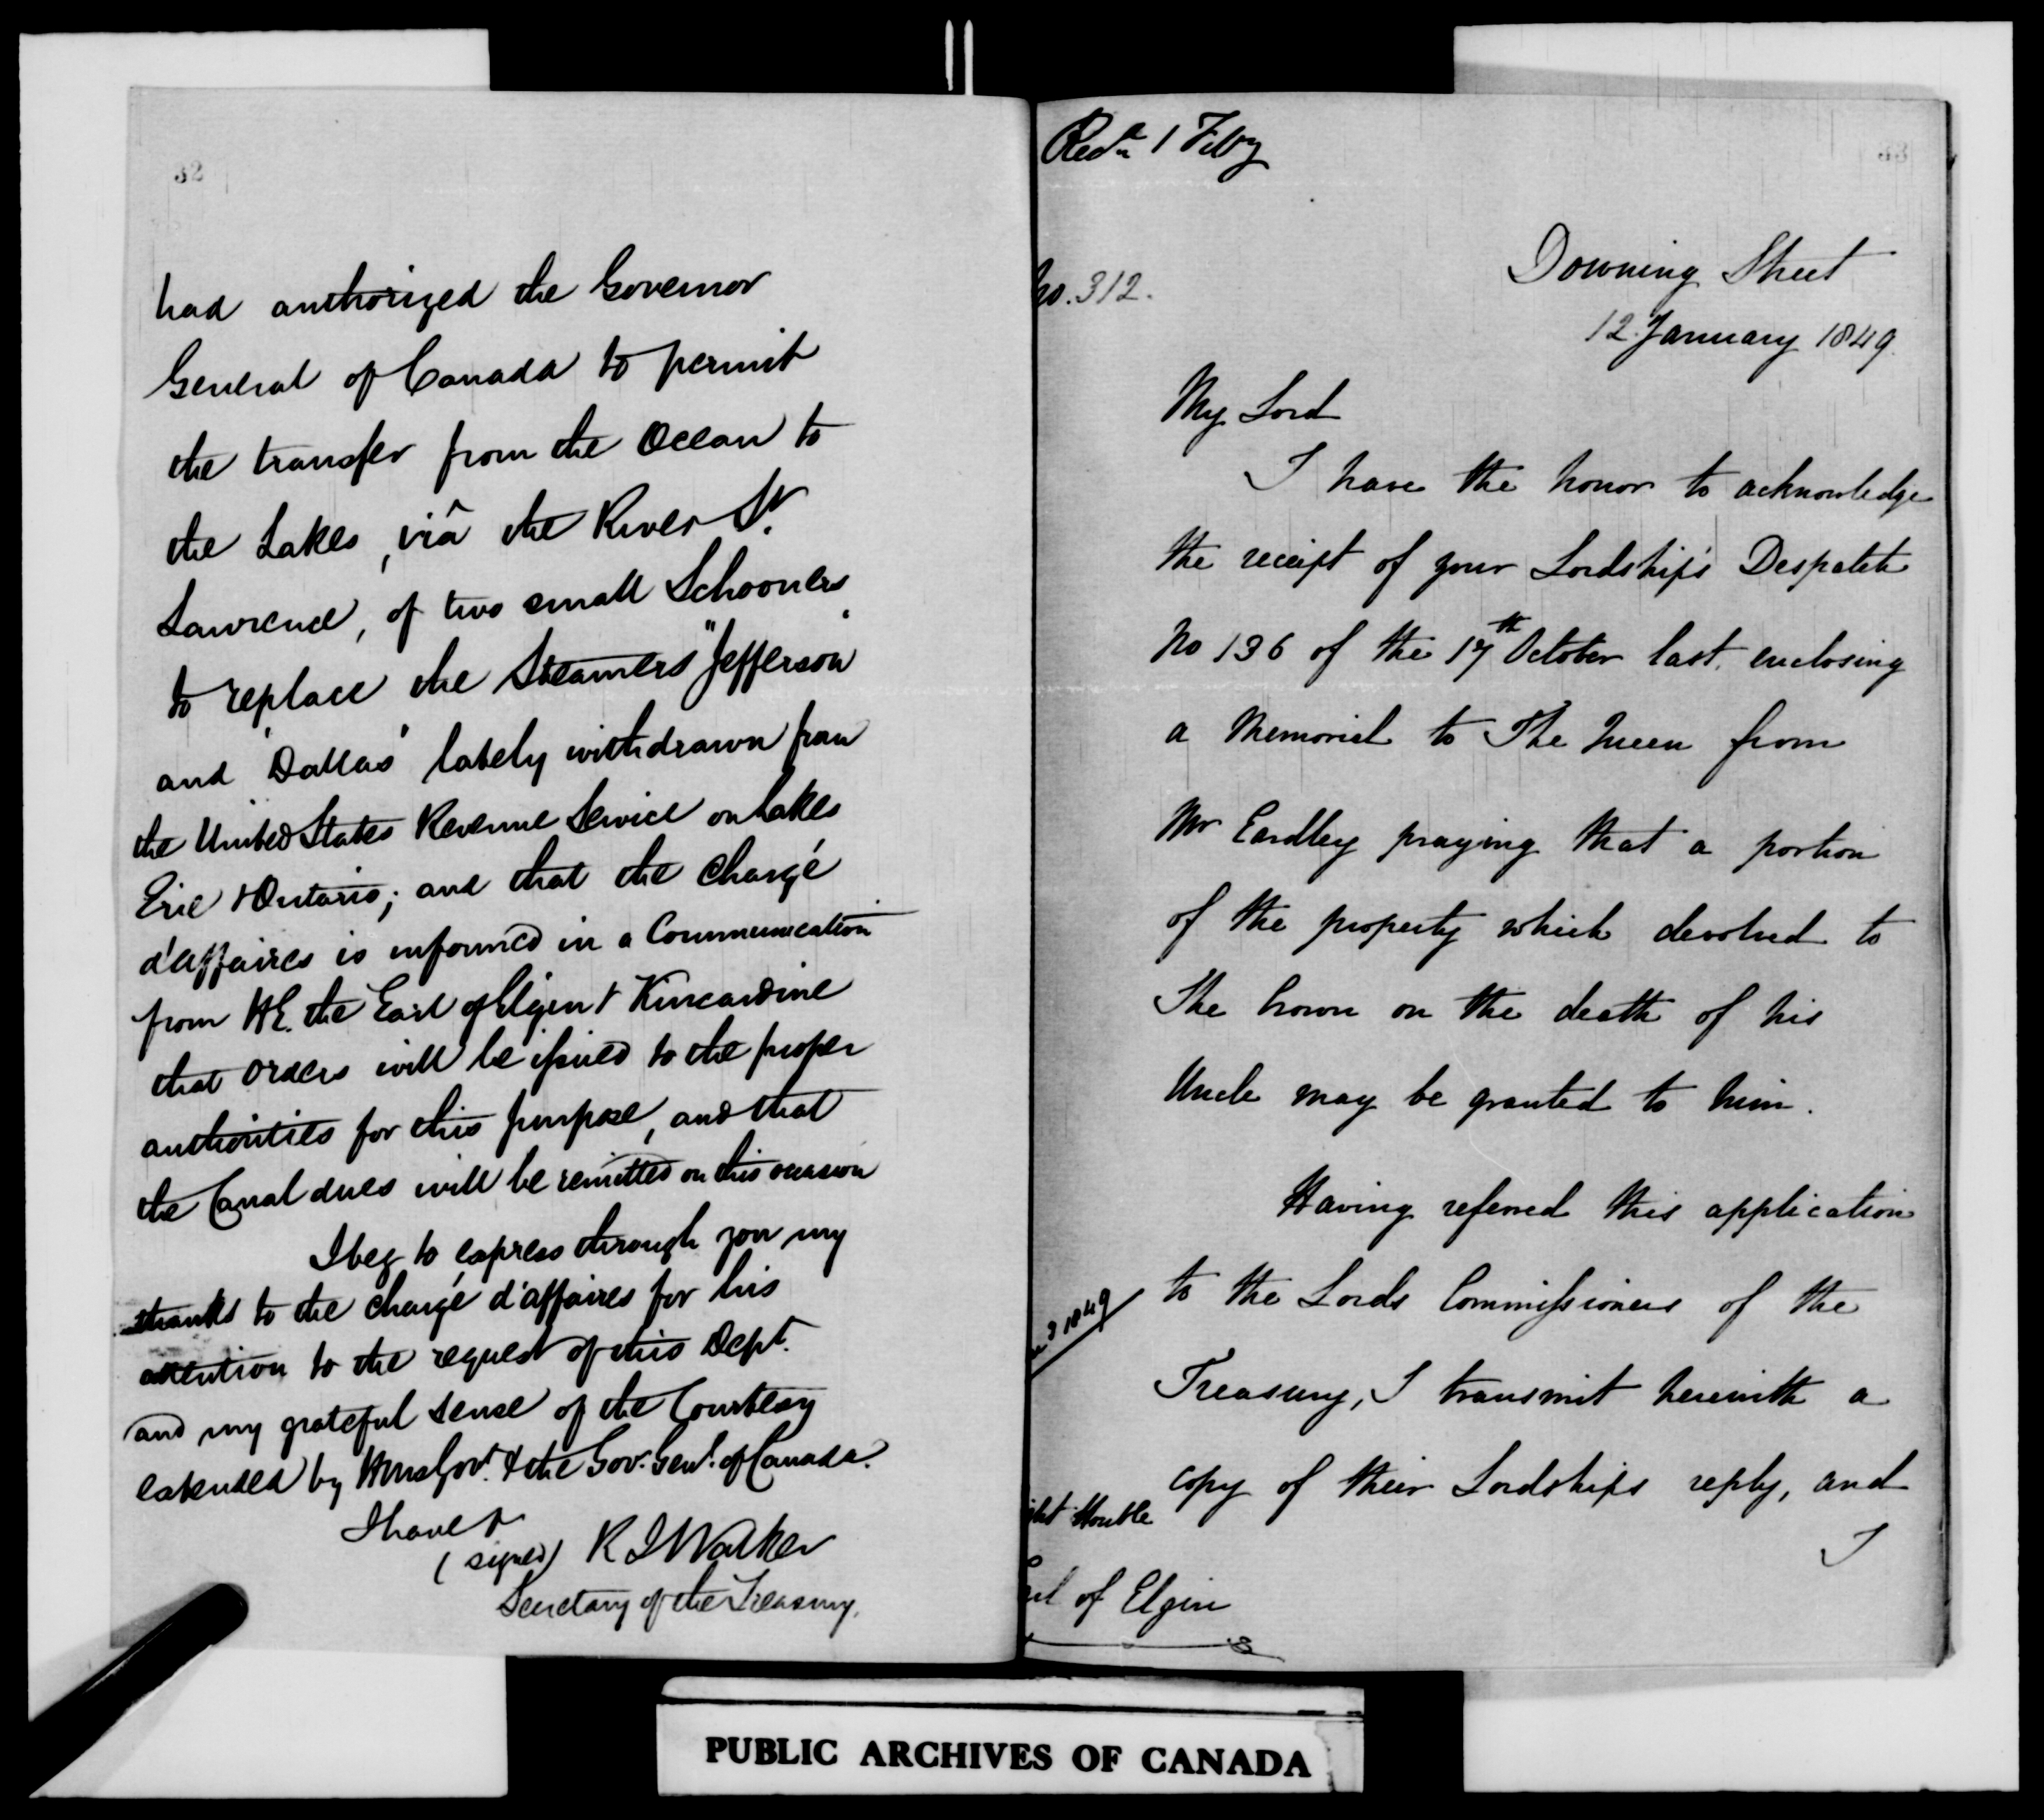 32
had authorized the Governor
General of Canada to permit
the transfer from the Ocean to
the Lakes, viâ the River St.
Lawrence, of two small Schooners
to replace the Steamers "Jefferson"
and "Dallas" lately withdrawn from
the United States Revenue Service on Lakes
Erie & Ontario; and that the Chargé
d'affaires is informed in a Communication
from H.E. the Earl of Elgin & Kincardine
that orders will be issued to the proper
authorities for this purpose, and that
the Canal dues will be remitted on this occasion
I beg to express through you my
thanks to the chargé d'affaires for his
attention to the request of this Dept.
and my grateful sense of the Courtesy
extended by HMs Govt. & the Gov. Genl. of Canada.
I have &
(signed) R J Walker
Secretary of the Treasury.
33
Recd 1 Feby
No. 312.
Downing Street
12 January 1849.
My Lord
I have the honor to acknowledge
the receipt of your Lordship's Despatch
No 136 of the 17th October last, enclosing
a Memorial to The Queen from
Mr Eardley praying that a portion
of the property which devolved to
The Crown on the death of his
Uncle may be granted to him.
Having referred this application
to the Lords Commissioners of the
3 1849
Treasury, I transmit herewith a
copy of their Lordships reply, and
I
ght Honble
rl of Elgin
PUBLIC ARCHIVES OF CANADA